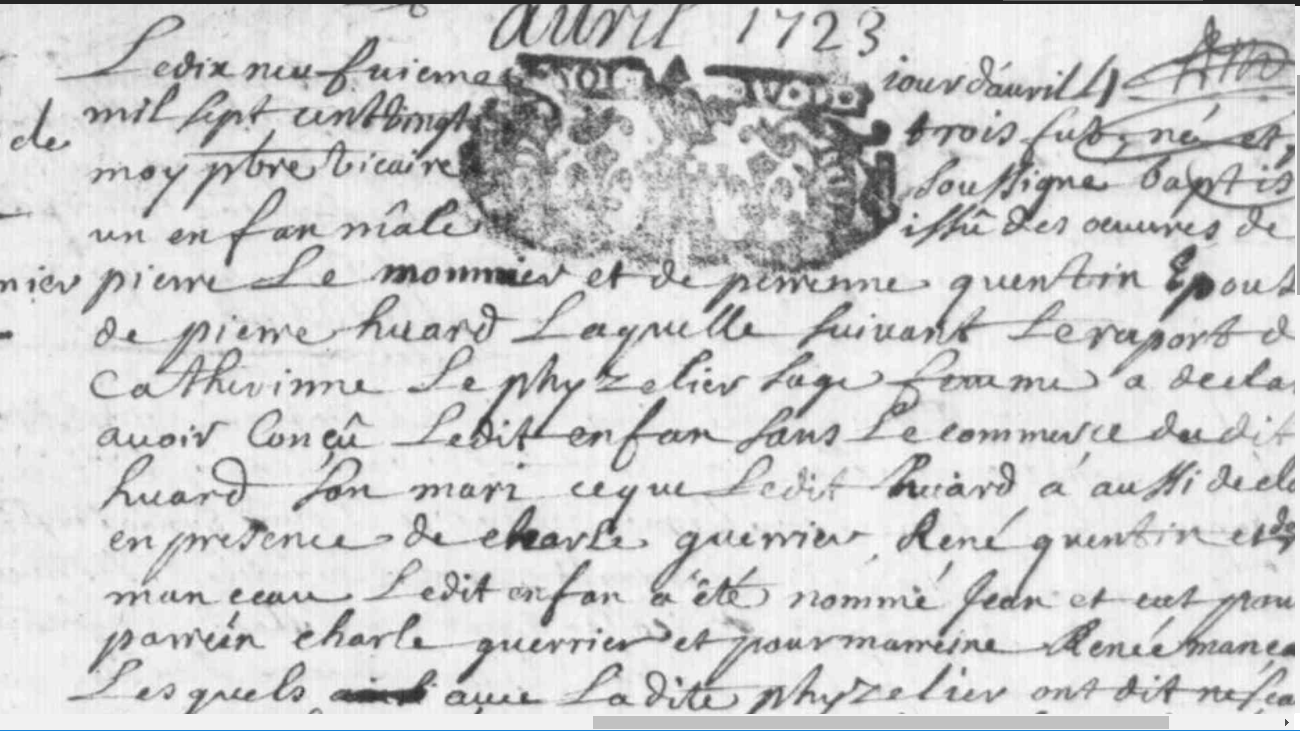 auvril 1723
Le dix neufuieme jour dauril
mil sept cent vingt trois fut né et
de moy pbre vicaire soussigne baptis
un enfan mâle issû des oeuures de
nier pierre Le monnier et de perrenne quentin Epous
de pierre huard Laquelle suivant Le raport d
Catherinne Le phyzelier sage femme a decla
auoir Conçû Ledit enfan sans Le commerce dudit
huard son mari ceque Ledit huard a aussi decla
en presence de charle guerrier, René quentin et de
manceau Ledit enfan a été nommé Jean et eut pou
parrein charle guerrier et pour marreine Renée mancea
Les quels avec La dite phyzelier ont dit ne sca